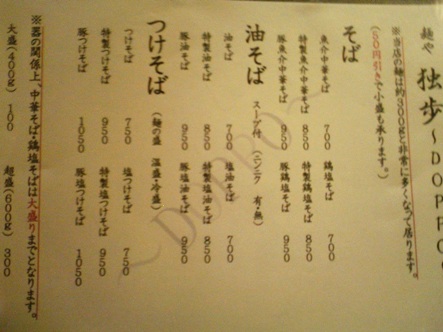 麺や 独歩～DOPPO～
※当店の麺は約300gと非常に多くなって居ります。
(50円引きで小盛も承ります。)
そば
魚介中華そば 700 鶏塩そば 700
特製魚介中華そば 850 特製鶏塩そば 850
豚魚介中華そば 950 豚鶏塩そば 950
油そば スープ付 (ニンニク 有・無)
油そば 700 塩油そば 700
特製油そば 850 特製塩油そば 850
豚油そば 950 豚塩油そば 950
つけそば (麺の盛 温盛・冷盛)
つけそば 750 塩つけそば 750
特製つけそば 950 特製塩つけそば 950
豚つけそば 1050 豚塩つけそば 1050
※器の関係上、中華そば・鶏塩そばは大盛りまでとなります。
大盛(400g) 100 超盛(600g) 300
～DOPPO～